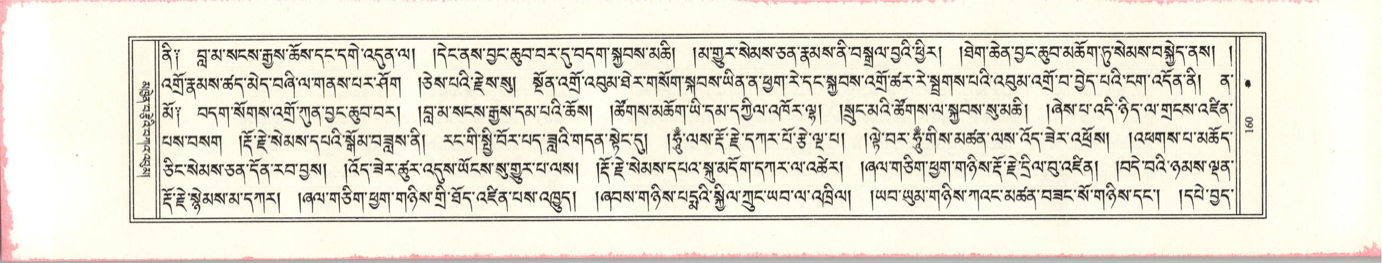 ནི༔ བླ་མ་སངས་རྒྱས་ཆོས་དང་དགེ་འདུན་ལ། །དེང་ནས་བྱང་ཆུབ་བར་དུ་བདག་སྐྱབས་མཆི། །མ་གྱུར་སེམས་ཅན་རྣམས་ནི་བསྒྲལ་བྱའི་ཕྱིར། །ཐེག་ཆེན་བྱང་ཆུབ་མཆོག་ཏུ་སེམས་བསྐྱེད་ནས། །
འགྲོ་རྣམས་ཚད་མེད་བཞི་ལ་གནས་པར་ཤོག །ཅེས་པའི་རྗེས་སུ། སྔོན་འགྲོ་འབུམ་ཐེར་གསོག་སྐབས་ཡིན་ན་ཕྱག་རེ་དང་སྐྱབས་འགྲོ་ཚར་རེ་སྦྲགས་པའི་འབུམ་འགྲོ་བ་བྱེད་པའི་ངག་འདོན་ནི། ན་
མོ༔ བདག་སོགས་འགྲོ་ཀུན་བྱང་ཆུབ་བར། །བླ་མ་སངས་རྒྱས་དམ་པའི་ཆོས། །ཚོགས་མཆོག་ཡི་དམ་དཀྱིལ་འཁོར་ལྷ། །སྲུང་མའི་ཚོགས་ལ་སྐྱབས་སུ་མཆི། །ཞེས་པ་འདི་ཉིད་ལ་གྲངས་འཛིན་
པས་བསག །རྡོ་རྗེ་སེམས་དཔའི་སྒོམ་བཟླས་ནི། རང་གི་སྤྱི་བོར་པད་ཟླའི་གདན་སྟེང་དུ། །ཧཱུྂ་ལས་རྡོ་རྗེ་དཀར་པོ་རྩེ་ལྔ་པ། །ལྟེ་བར་ཧཱུྂ་གིས་མཚན་ལས་འོད་ཟེར་འཕྲོས། །འཕགས་པ་མཆོད་
ཅིང་སེམས་ཅན་དོན་རབ་བྱས། །འོད་ཟེར་ཚུར་འདུས་ཡོངས་སུ་གྱུར་པ་ལས། །རྡོ་རྗེ་སེམས་དཔའ་སྐུ་མདོག་དཀར་ལ་འཚེར། །ཞལ་གཅིག་ཕྱག་གཉིས་རྡོ་རྗེ་དྲིལ་བུ་འཛིན། །བདེ་བའི་ཉམས་ལྡན་
རྡོ་རྗེ་སྙེམས་མ་དཀར། །ཞལ་གཅིག་ཕྱག་གཉིས་གྲི་ཐོད་འཛིན་པས་འཁྱུད། །ཞབས་གཉིས་པདྨའི་སྐྱིལ་ཀྲུང་ཡབ་ལ་འཁྲིལ། །ཡབ་ཡུམ་གཉིས་ཀའང་མཚན་བཟང་སོ་གཉིས་དང་། །དཔེ་བྱད་
160